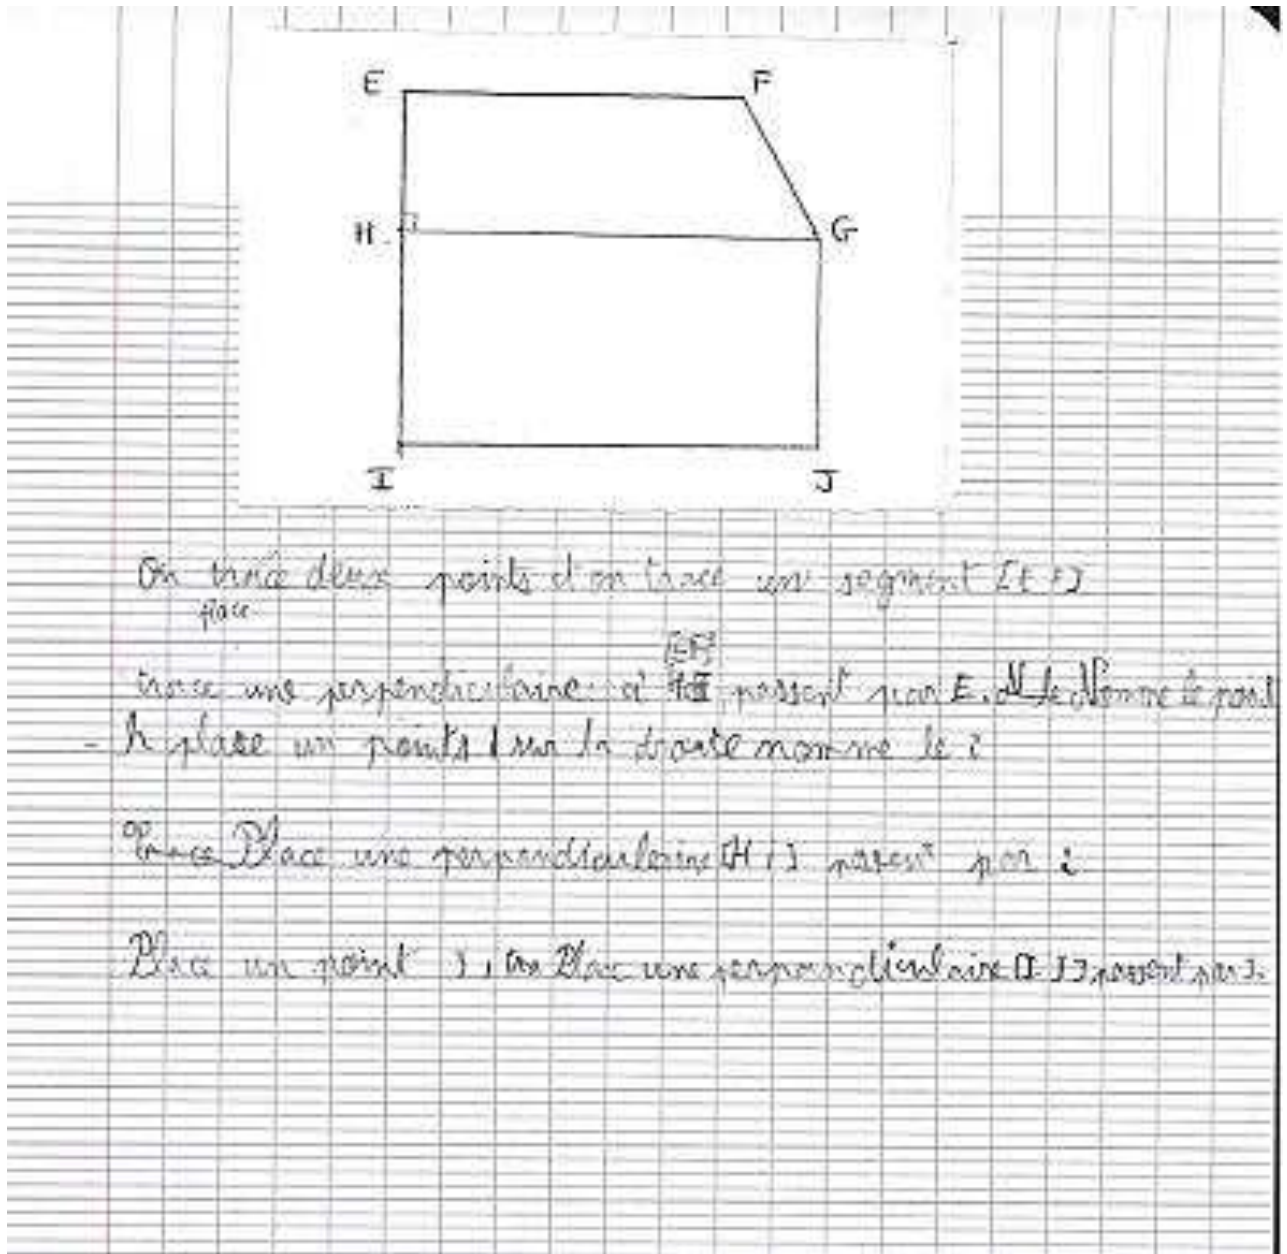 E F
H G
I J
On trace deux points et on trace un segment [E F]
place
[EF]
trace une perpendiculaire à passent par E. Nomme le point
h place un points sur la droite nomme le i
Place une perpendiculerire [H i] passent par i
Place un point J, on Place une perpendiculaire [I J] passent par J.